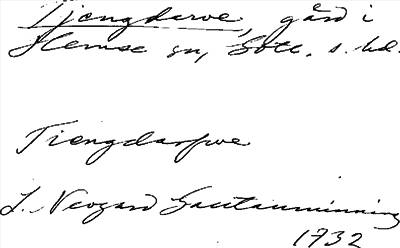 Tjengdarve, gård i
Hemse sn, Gotl. s. hd.
Tiengdarfwe
L. Neogard Gautauminning
1732